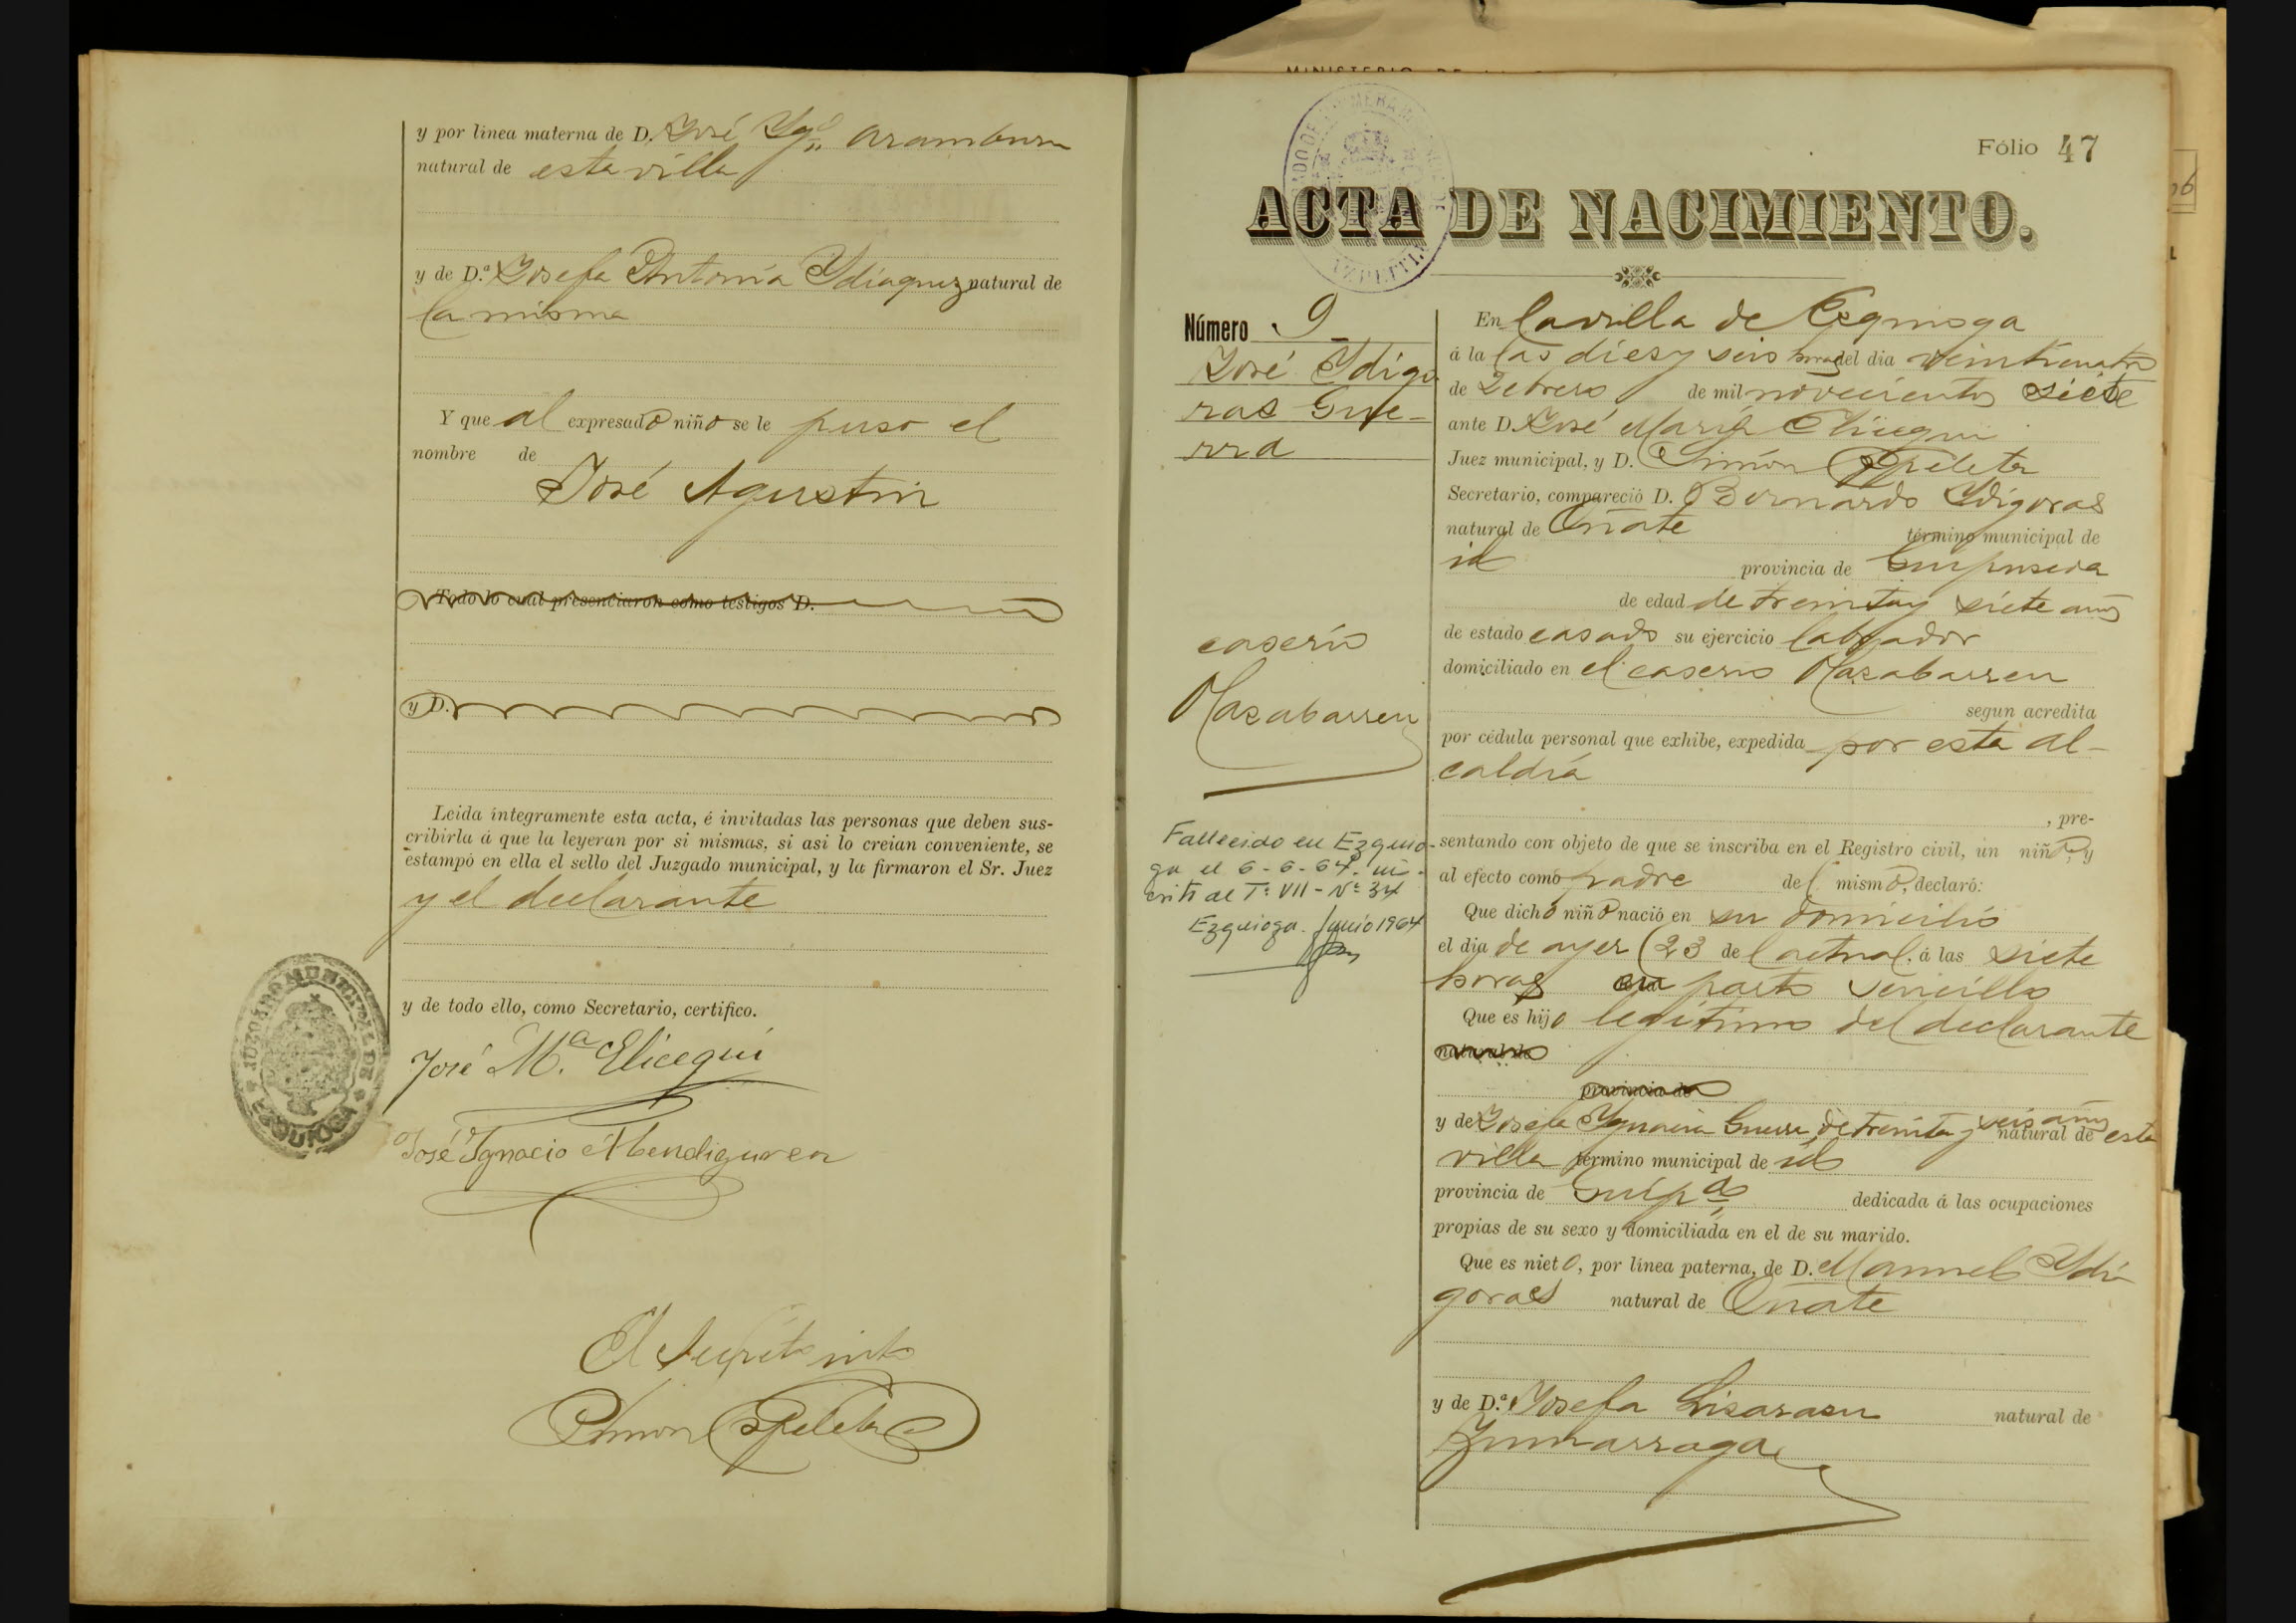 y por linea materna de D. José Ygº Aramburu
natural de esta villa
y de D.ª Josefa Antonia Ydiaquez natural de
la misma
Y que al expresado niño se le puso el
nombre de
José Agustin
Todo lo cual presenciaron como testigos D.
y D.
Leida íntegramente esta acta, é invitadas las personas que deben sus-
cribirla á que la leyeran por si mismas, si asi lo creian conveniente, se
estampó en ella el sello del Juzgado municipal, y la firmaron el Sr. Juez
y el declarante
y de todo ello, como Secretario, certifico.
José M.ª Elicegui
José Ignacio Mendiguren
El
Simon Espeleta
JUZGADO MUNICIPAL DE
EZQUIOGA
MINISTERIO DE
Fólio 47
ACTA DE NACIMIENTO.
AZPEITIA
Número 9
José Ydigo
ras Gue-
rra
caserio
Masabarren
Fallecido en Ezquio-
ga el 6-6-64. ins-
crito al Tº VII - Nº 34
Ezquioga. Junio 1964
En la villa de Ezquioga
á la las dies y seis horas del dia veinticuatro
de Febrero de mil novecientos siete
ante D. José María Elicegui
Juez municipal, y D. Simón Espeleta
Secretario, compareció D. Bernardo Ydigoras
natural de Oñate término municipal de
id provincia de Guipuscoa
de edad de treinta y siete años
de estado casado su ejercicio labrador
domiciliado en el caserio Masabarren
segun acredita
por cédula personal que exhibe, expedida por esta al-
caldía
, pre-
sentando con objeto de que se inscriba en el Registro civil, un niño, y
al efecto como padre del mismo, declaró:
Que dicho niño nació en su domicilio
el dia de ayer (23 del actual. á las siete
horas en parto sencillo
Que es hijo legítimo del declarante
natural de
provincia de
y de Josefa Ygnacia Guerra, de treinta y seis años natural de esta
villa término municipal de id
provincia de Guipª dedicada á las ocupaciones
propias de su sexo y domiciliada en el de su marido.
Que es nieto, por línea paterna, de D. Manuel Ydi
goras natural de Oñate
y de D.ª Josefa Lisarasu natural de
Zumarraga